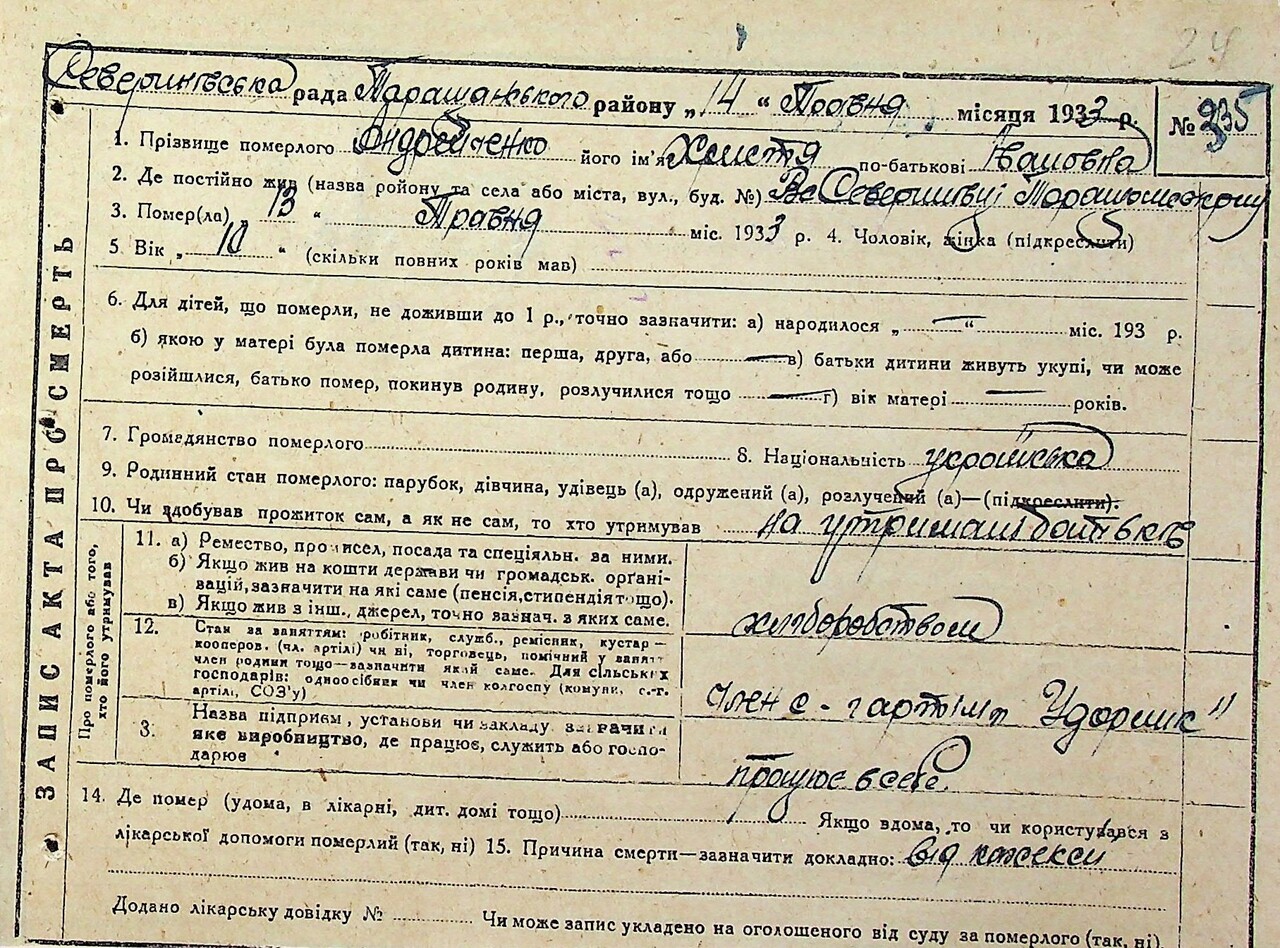 24
Северинівська рада Таращанського району „14“ Травня місяця 1933 р. № 335
1. Прізвище померлого Андрейченко його ім'я Христя по-батькові Івановна
2. Де постійно жив (назва району та села або міста, вул., буд. №) Северинівці
3. Помер(ла) „13“ Травня міс. 1933 р. 4. Чоловік, жінка (підкреслити)
5. Вік „10“ (скільки повних років мав)
6. Для дітей, що померли, не доживши до 1 р., точно зазначити: а) народилося „—“ міс. 193 р.
б) якою у матері була померла дитина: перша, друга, або — в) батьки дитини живуть укупі, чи може
розійшлися, батько помер, покинув родину, розлучилися тощо — г) вік матері — років.
7. Громадянство померлого 8. Національність українська
9. Родинний стан померлого: парубок, дівчина, удівець (а), одружений (а), розлучений (а)—(підкреслити).
10. Чи здобував прожиток сам, а як не сам, то хто утримував на утримані батьків
ЗАПИС АКТА ПРО СМЕРТЬ
Про померлого або того, хто його утримував
11. а) Ремество, промисел, посада та спеціяльн. за ними.
б) Якщо жив на кошти держави чи громадськ. орґані-
вацій, зазначити на які саме (пенсія, стипендія тощо).
в) Якщо жив з інш. джерел, точно зазнач. з яких саме.
хліборобством
12. Стан за заняттям: робітник, служб., ремісник, кустар—
кооперов. (чл. артілі) чи ні, торговець, помічний у занятт
член родини тощо—зазначити який саме. Для сільських
господарів: одноосібник чи член колгоспу (комуни, с.-г.
артілі, СОЗ'у)
член с-г артілі Ударник"
3. Назва підприєм, установи чи закладу зазначити
яке виробництво, де працює, служить або госпо-
дарює
працює в себе.
14. Де помер (удома, в лікарні, дит. домі тощо) Якщо вдома, то чи користувався з
лікарської допомоги померлий (так, ні) 15. Причина смерти—зазначити докладно: від
Додано лікарську довідку № Чи може запис укладено на оголошеного від суду за померлого (так, ні)